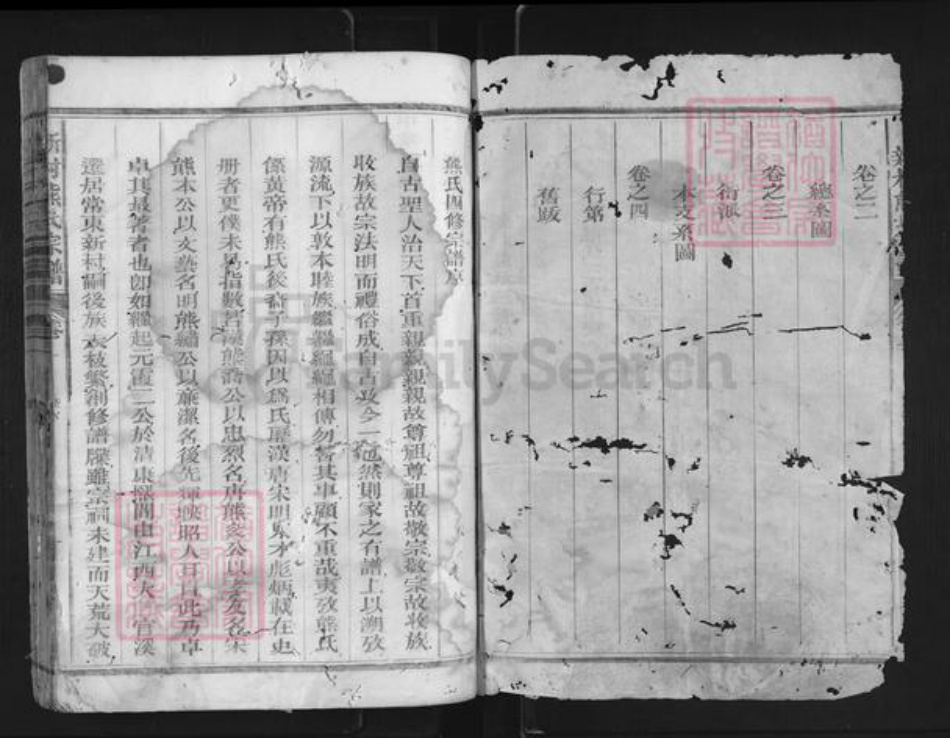 卷之二
總系圖
卷之三
衍派
本支系圖
卷之四
行第
舊跋
熊氏四修宗譜序
自古聖人治天下首重親親親親故尊祖尊祖故敬宗敬宗故收族
收族故宗法明而禮俗成自古及今一也然則家之有譜上以溯攷
源流下以敦本睦族繼繼繩繩相傳勿替其事顧不重哉夷攷熊氏
係黃帝有熊氏後裔子孫因以為氏歷漢唐宋明以來才彪炳載在史
册者更僕未易指數若漢熊喬公以忠烈名唐熊 公以孝友名宋
熊本公以文藝名明熊繡公以廉潔名後先輝映昭人耳目此乃卓
卓其最著者也卽如繼起元霞二公於清康熙間由江西大 官溪
遷居常東新村嗣後族大枝繁創修譜牒雖宗祠未建而天荒大破
新村熊氏宗譜
FamilySearch